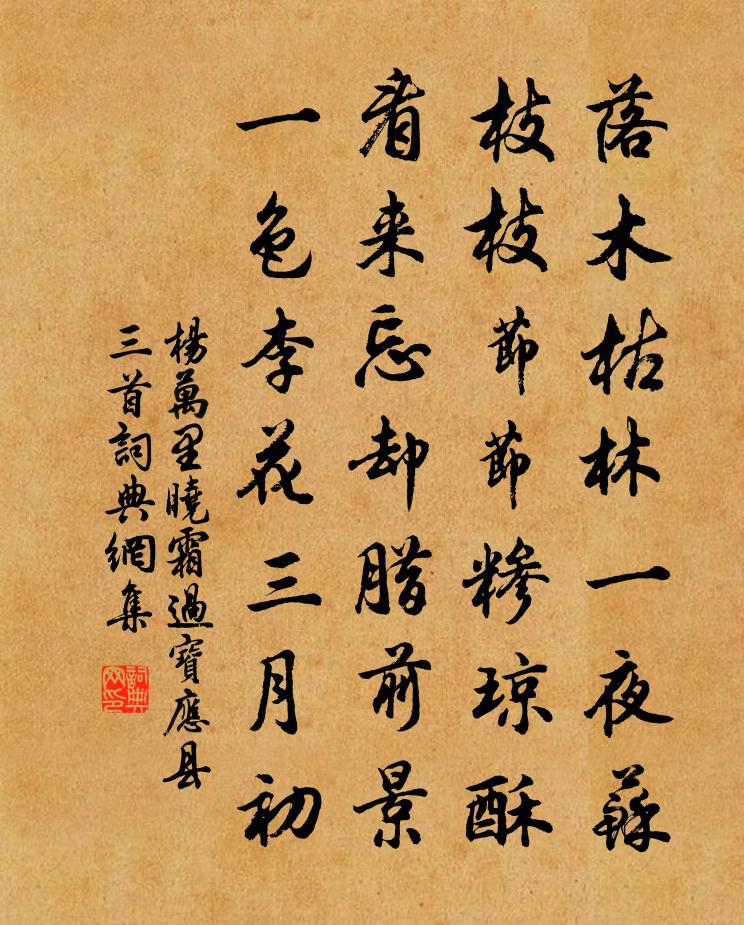 落木枯林一夜蘇
枝枝節節糝琼酥
看来忘却腊前景
一色李花三月初
楊萬里曉霜過寶應县
三首詞典網集
詞典网印